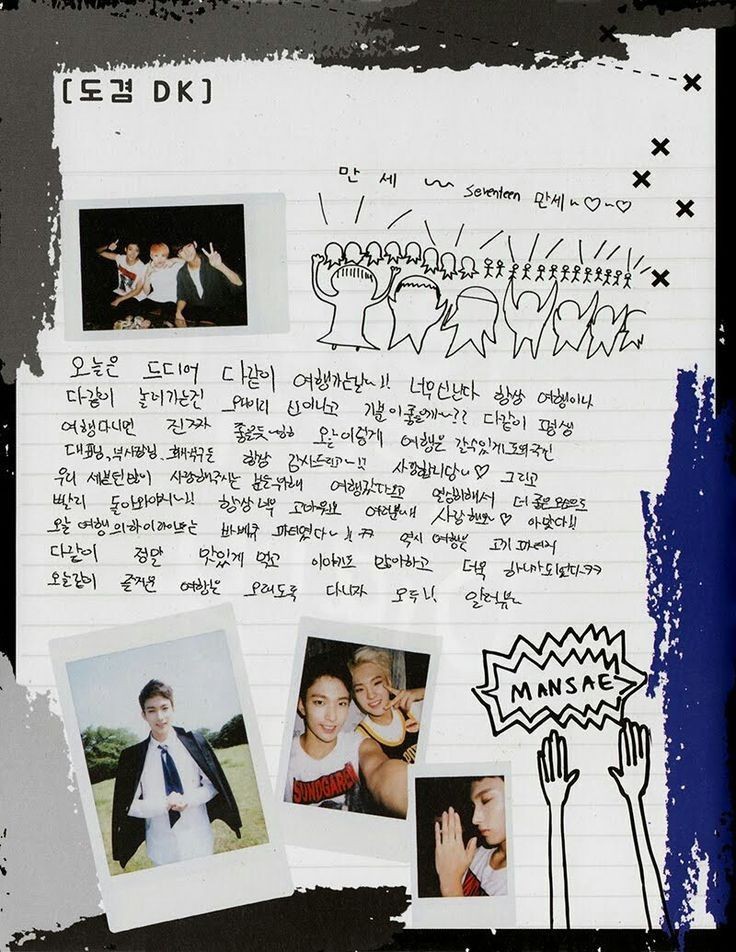 [도겸 DK]
만 세 ~ Seventeen 만세~♡~♡
오늘은 드디어 다같이 여행가는날~!! 너무신난다 항상 여행이나
다같이 놀러가는건 왜이리 신이나고 기분이좋을까~?? 다같이 평생
여행다니면 진짜 좋을듯~ 오늘이렇게 여행을 갈수있게 도와주신
대표님, 부사장님, 회사식구들 항상 감사드리고~!! 사랑합니당~♡ 그리고
우리 세븐틴 많이 사랑해주시는 분들위해 여행갔다오고 열심히해서 더 좋은 모습으로
빨리 돌아와야지~!! 항상 너무 고마워요 여러분 사랑해요♡ 아맞다!!
오늘 여행의 하이라이트는 바베큐 파티였다~!! ㅋㅋ 역시 여행은 고기 파티지
다같이 정말 맛있게 먹고 이야기도 많이하고 더욱 하나가되었다ㅋㅋ
오늘같이 즐거운 여행은 오래도록 다니자 모두다 알러뷰~
SUNDGAREN
MANSAE